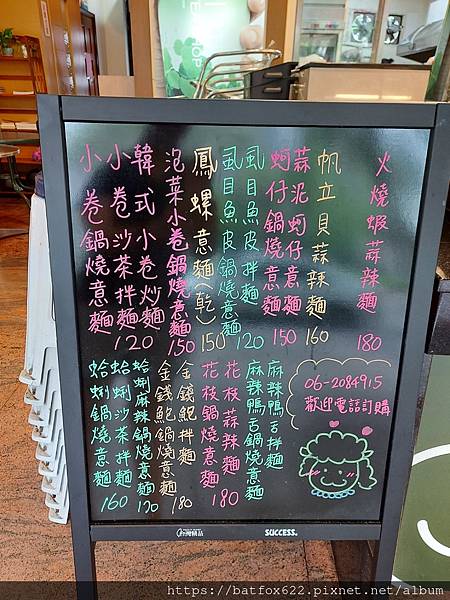 火燒蝦蒜辣麵
180
帆立貝蒜辣麵
160
蒜泥蚵仔意麵
蚵仔鍋燒意麵
150
虱目魚皮拌麵
虱目魚皮鍋燒意麵
120
鳳螺意麵(乾)
150
泡菜小卷鍋燒意麵
150
韓式小卷炒麵
小卷沙茶拌麵
小卷鍋燒意麵
120
06-2084915
歡迎電話訂購
麻辣鴨舌拌麵
麻辣鴨舌鍋燒意麵
花枝蒜辣麵
花枝鍋燒意麵
180
金錢鮑拌麵
金錢鮑鍋燒意麵
180
蛤蜊麻辣鍋燒意麵
170
蛤蜊沙茶拌麵
蛤蜊鍋燒意麵
160
SUCCESS.
https://batfox622.pixnet.net/album